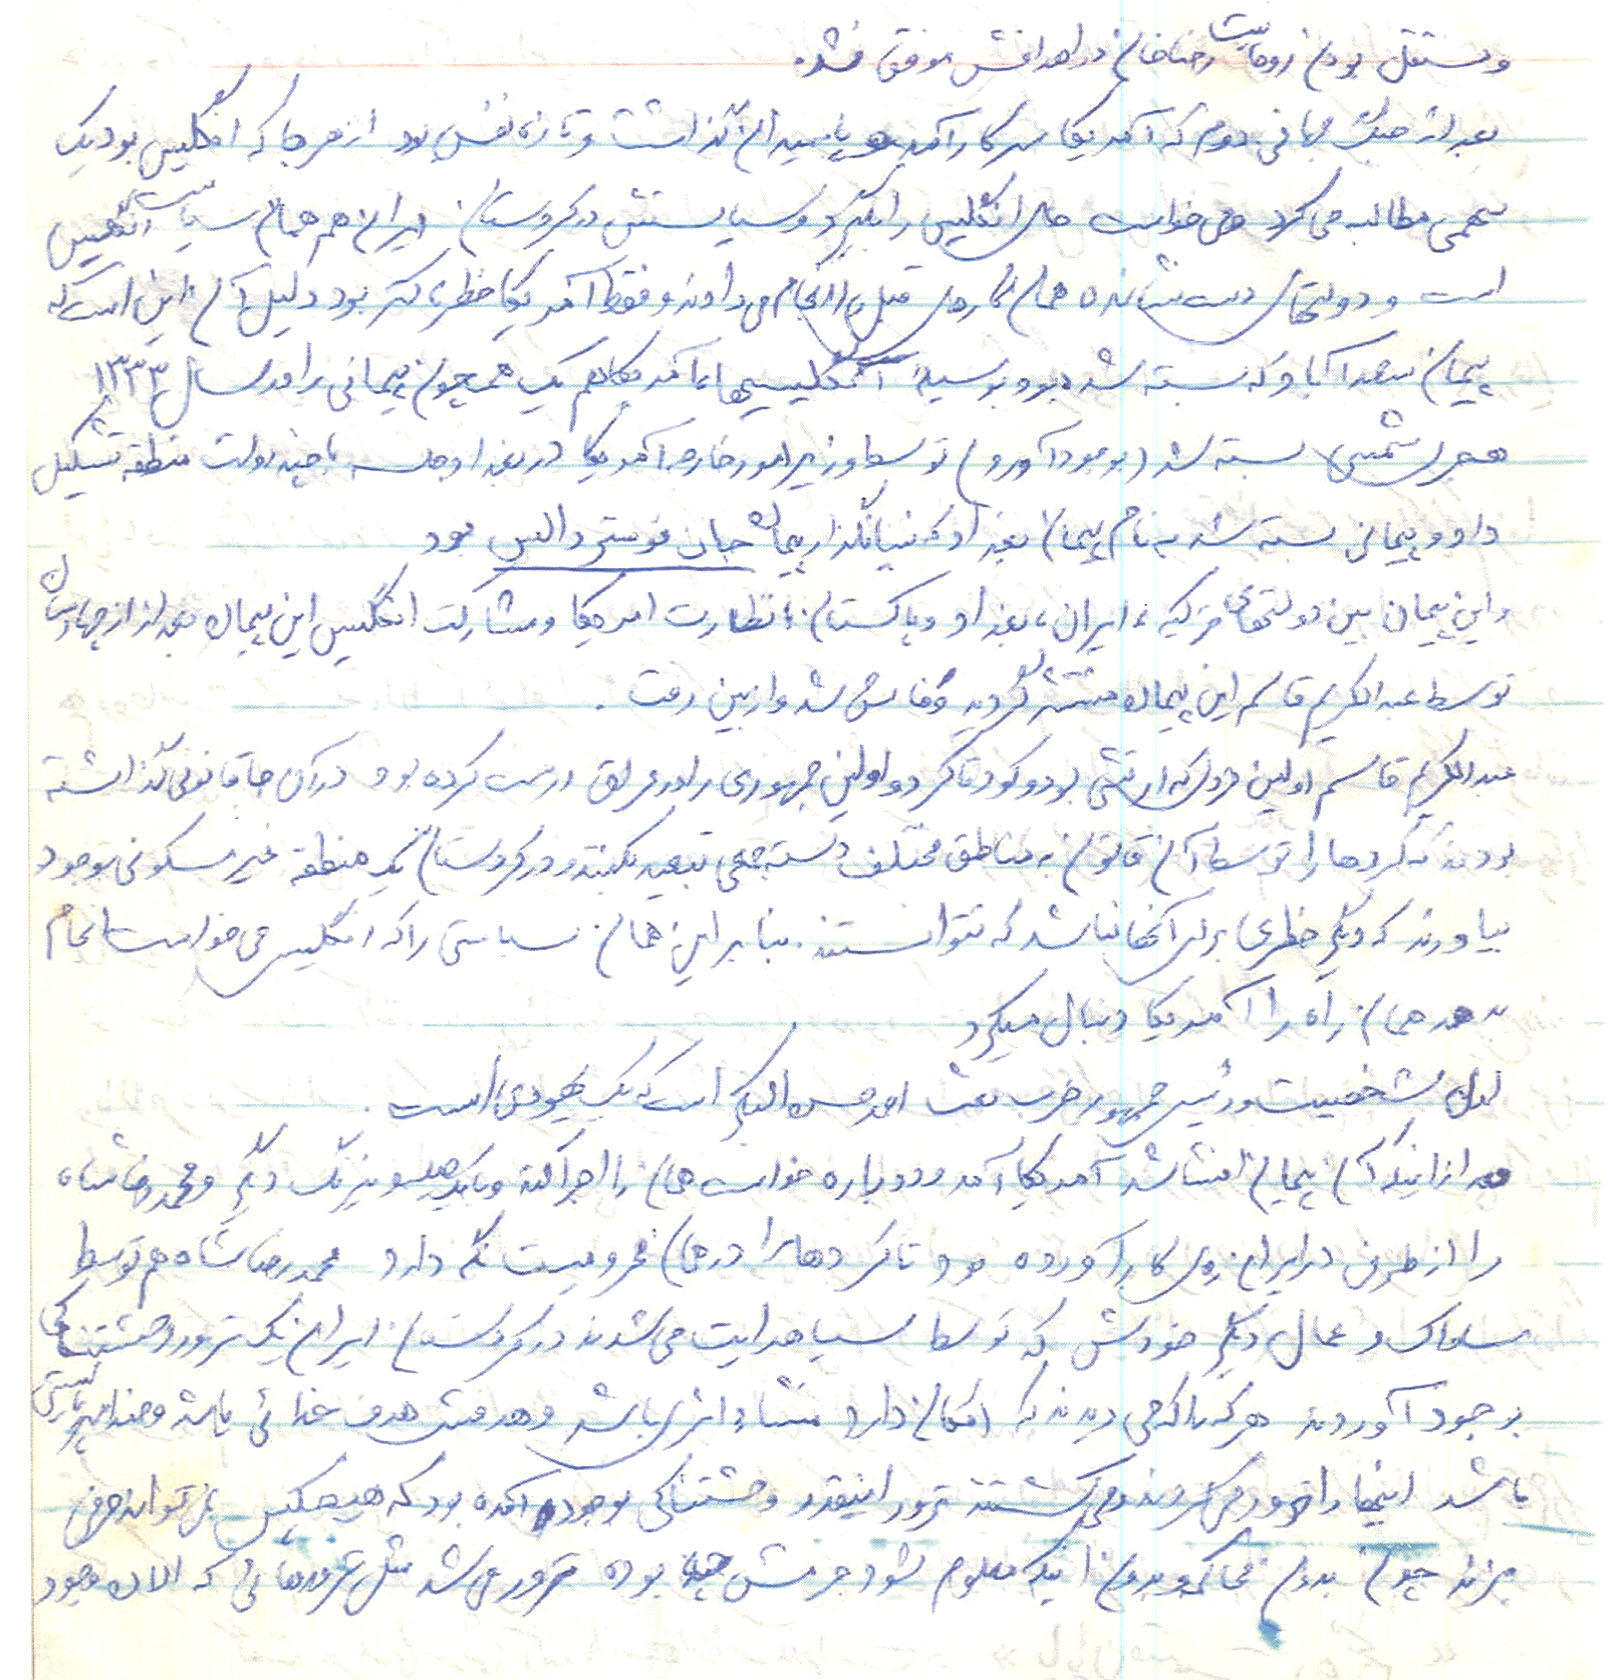 و مستقل بودن روحانیت رضاخان در اهدافش موفق نشد.
بعد از جنگ جهانی دوم که آمریکا سر کار آمد و پا به میدان گذاشت و تازه نفس بود از هر جا که انگلیس بود یک
سهمی مطالبه می کرد و می خواست جای انگلیس را بگیرد و سیاستش در کردستان ایران هم همان سیاست انگلیس
است و دولتهای دست نشانده همان کارهای قبل را انجام می دادند و فقط آمریکا خطرناکتر بود دلیل آن این است که
پیمان سعدآباد که بسته شده بود بوسیله انگلیسیها اما آمریکا هم یک همچون پیمانی را در سال ۱۳۳۳
هجری شمسی بسته شد (بوجود آورد) توسط وزیر امور خارجه آمریکا در بغداد جلسه با چند دولت منطقه تشکیل
داد و پیمانی بسته شد به نام پیمان بغداد که بنیانگذار پیمان جان فوستر دالس بود
و این پیمان بین دولتهای ترکیه، ایران، بغداد و پاکستان با نظارت امریکا و مشارکت انگلیس این پیمان بعد از چهار سال
توسط عبدالکریم قاسم این پیمان منتشر گردید و فاش شد و از بین رفت.
عبدالکریم قاسم اولین فردی که ارتشی بود و کودتا کرد و اولین جمهوری را در عراق درست کرده بود در آن جا قانونی گذاشته
بودند که کردها را توسط آن قانون به مناطق مختلف دسته جمعی تبعید بکنند و در کردستان یک منطقه غیر مسکونی بوجود
بیاورند که دیگر خطری برای آنها نباشد که نتوانستند. بنابراین همان سیاستی را که انگلیس می خواست انجام
بدهد همان راه را آمریکا دنبال میکرد
اولین شخصیت و رئیس جمهور حزب بعث احمد حسن البکر است که یک یهودی است.
بعد از اینکه آن پیمان افشا شد آمریکا آمد و دوباره خواست همان را اجرا کند و با یک حیله و نیرنگ دیگر و محمد رضا شاه
را از طرفی در ایران روی کار آورده بود تا کردها را در همان محرومیت نگه دارد محمد رضا شاه هم توسط
ساواک و عمال دیگر خودش که توسط سیا هدایت می شدند در کردستان ایران یک ترور وحشتناکی
بوجود آوردند هر که را که می دیدند که امکان دارد منشاء اثری باشد و هدفش هدف خدائی باشد و ضد امپریالیستی
باشد اینها را ترور می کردند و می کشتند ترور اینقدر وحشتناکی بوجود آمده بود که هیچکس نمی تواند حرفی
بزند چون بدون محاکمه و بدون اینکه معلوم شود جرمش چه بوده ترور می شد مثل ترورهائی که الان وجود